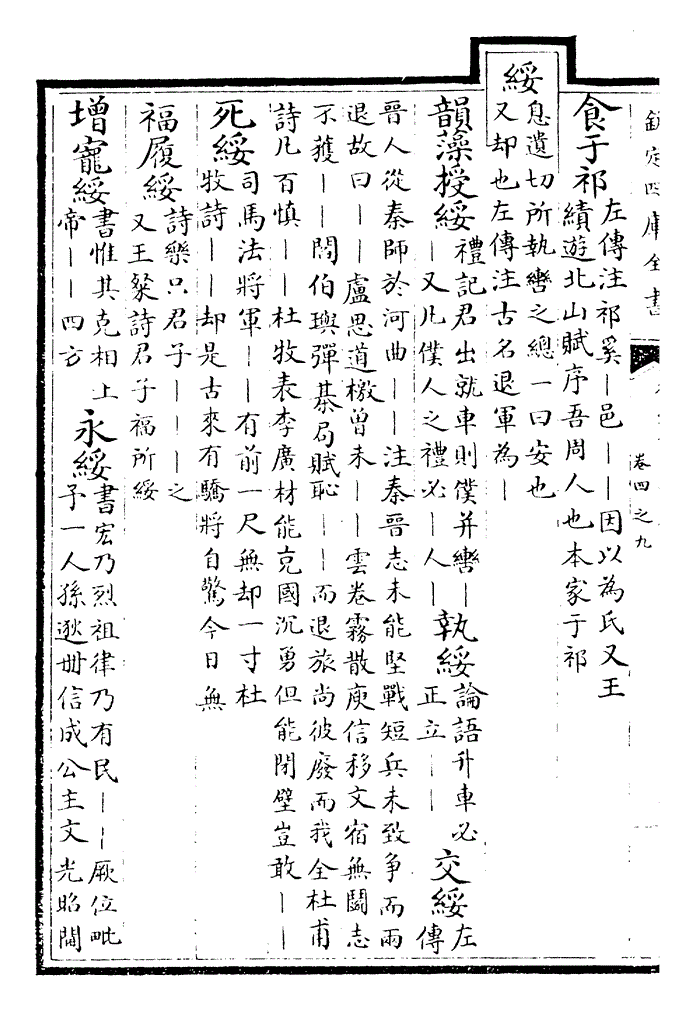 欽定四庫全書
卷四之九
食于祁
左傳注祁奚|邑||因以為氏又王
績遊北山賦序吾周人也本家于祁
綏
息遺切所執轡之總一曰安也
又却也左傳注古名退軍為|
韻藻授綏
禮記君出就車則僕并轡|
|又凡僕人之禮必|人|
執綏
論語升車必
正立||
交綏
左
傳
晉人從秦師於河曲||注秦晉志未能堅戰短兵未致争而兩
退故曰||盧思道檄曾未||雲卷霧散庾信移文宿無鬭志
不獲||閻伯璵彈棊局賦恥||而退旅尚彼廢而我全杜甫
詩凡百慎||杜牧表李廣材能克國沉勇但能閉壁豈敢||
死綏
司馬法將軍||有前一尺無却一寸杜
牧詩||却是古來有驕將自驚今日無
福履綏
詩樂只君子|||之
又王粲詩君子福所綏
增寵綏
書惟其克相上
帝||四方
永綏
書宏乃烈祖律乃有民||厥位毗
予一人孫逖冊信成公主文光昭閫